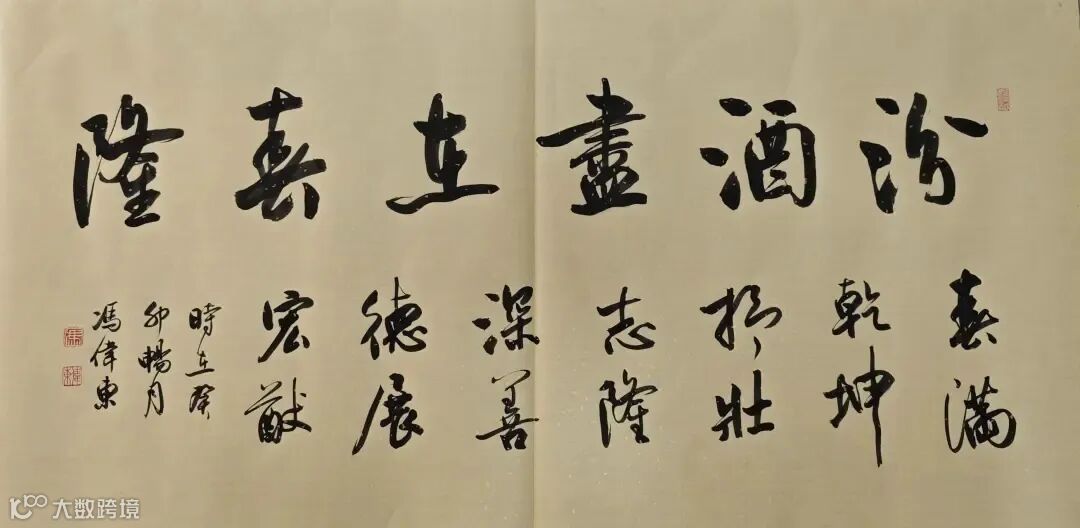 汾酒盡在春隆
春滿
乾坤
抒壯
志隆
深善
德展
宏猷
時在癸
卯暢月
馮偉東
大数跨境